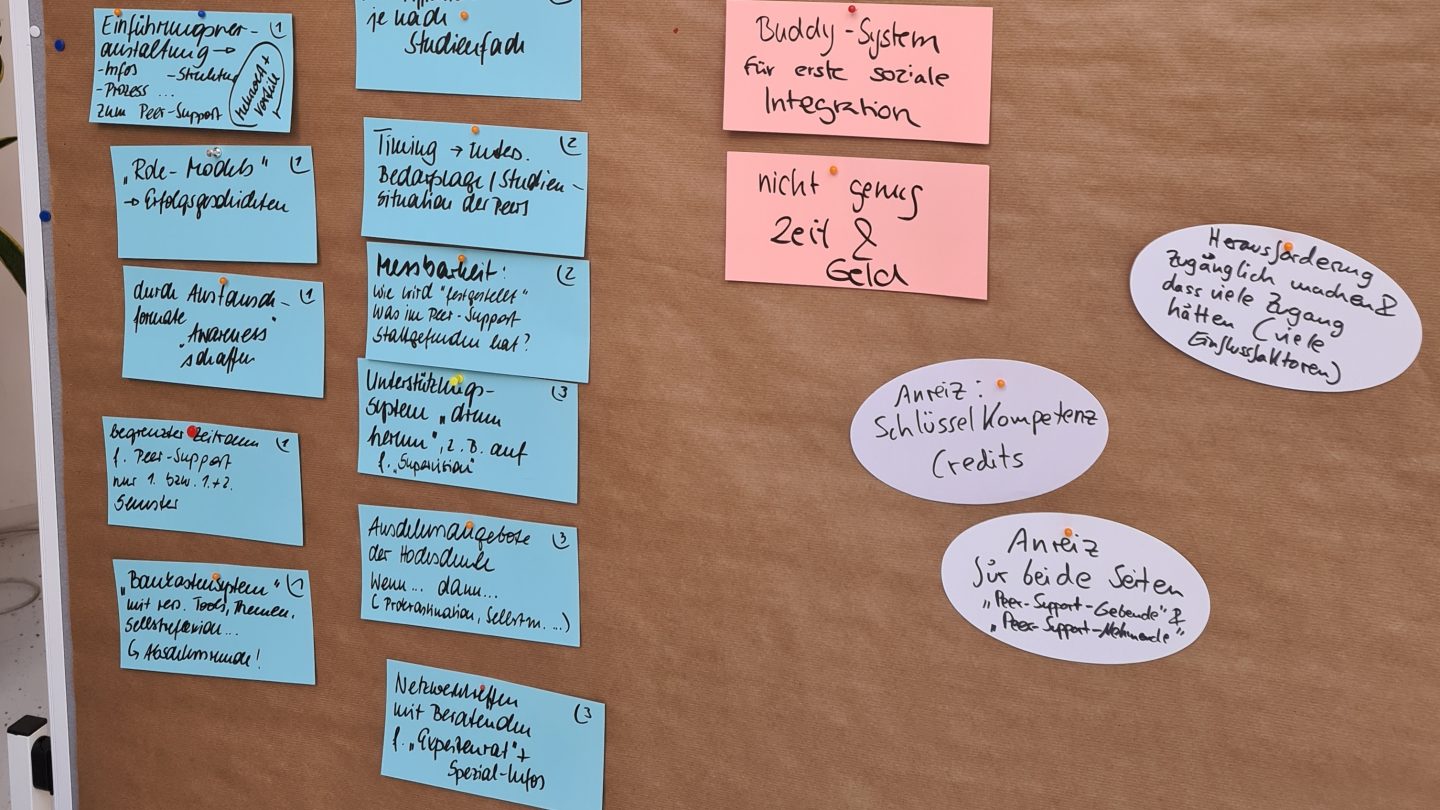 Einführungsver-
anstaltung →
-Infos -Struktur
-Prozess ...
zum Peer-Support
1
"Role-Models"
→ Erfolgsgeschichten
1
durch Austausch-
formate
"Awareness"
schaffen
1
begrenzter Zeitraum
f. Peer-Support
nur 1. bzw. 1.+2.
Semester
1
"Baukastensystem"
mit vers. Tools, Themen,
Selbstreflexion...
↳ Abschlussrunde!
je nach
Studienfach
Timing → Indes.
Bedarfslage / Studien-
situation der Peers
2
Messbarkeit:
Wie wird "festgestellt"
was im Peer-Support
stattgefunden hat?
2
Unterstützungs-
system "drum
herum", z.B. auf
f. "Supervision"
3
der Hochschule
Wenn ... dann...
(Prokrastination, Selbstm. ...)
3
Netzwerktreffen
mit Beratenden
f. "Expertenrat" +
Spezial-Infos
3
Buddy-System
für erste soziale
Integration
nicht genug
Zeit &
Geld
Herausforderung
zugänglich machen &
dass viele Zugang
hätten (viele
Einflussfaktoren)
Anreiz:
Schlüsselkompetenz
Credits
Anreiz
für beide Seiten
"Peer-Support-Gebende" &
"Peer-Support-Nehmende"